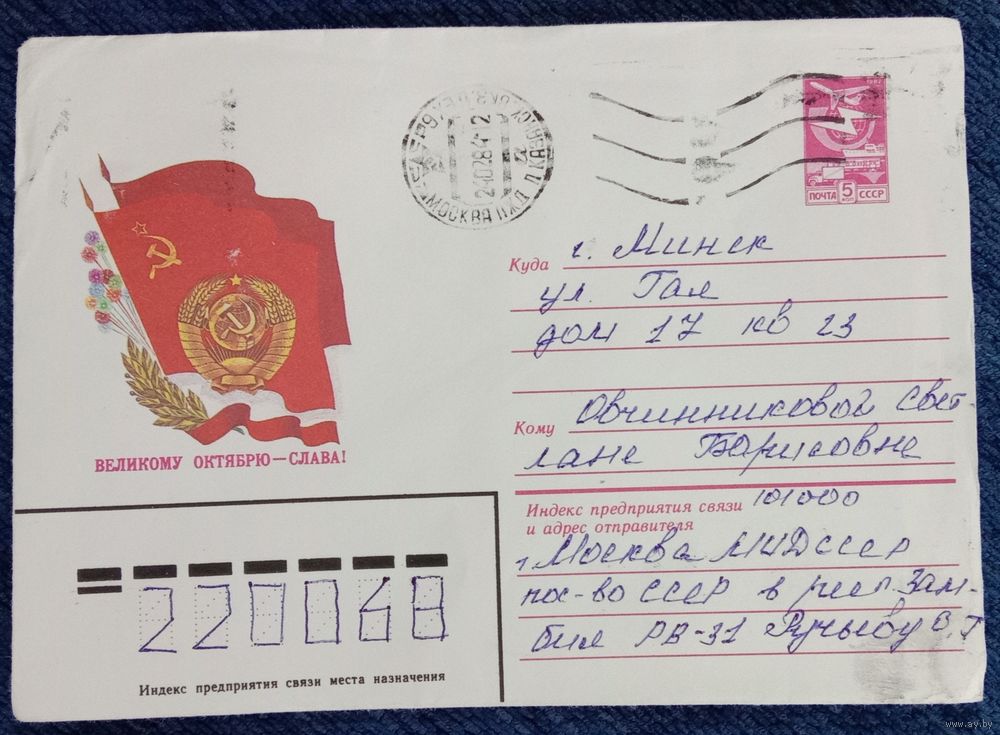 1982
ПОЧТА 5 КОП СССР
МОСКВА
Куда г. Минск
ул. Гая
дом 17 кв 23
Кому Овчинниковой Свет-
лане Борисовне
Индекс предприятия связи 101000
и адрес отправителя
г Москва МИД СССР
пос-во СССР в респ. Зам-
бия РВ-31
ВЕЛИКОМУ ОКТЯБРЮ — СЛАВА!
220068
Индекс предприятия связи места назначения
www.ay.by